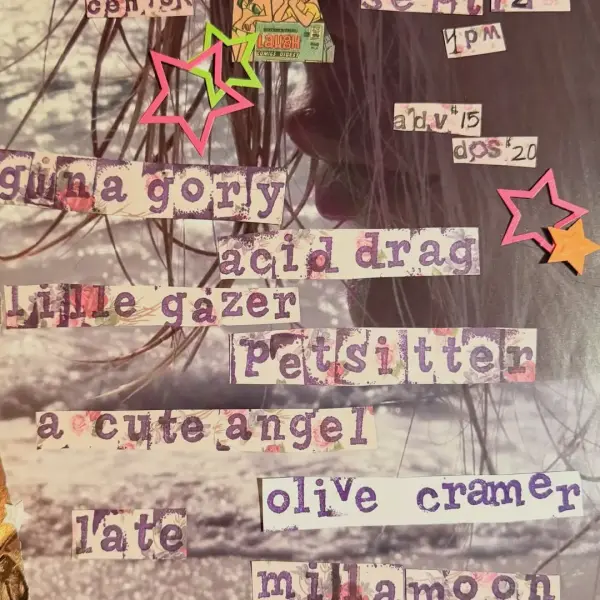 4pm
LAUGH
adv $15
dos $20
gina gory
acid drag
lille gazer
petsitter
a cute angel
olive cramer
late
milla moon